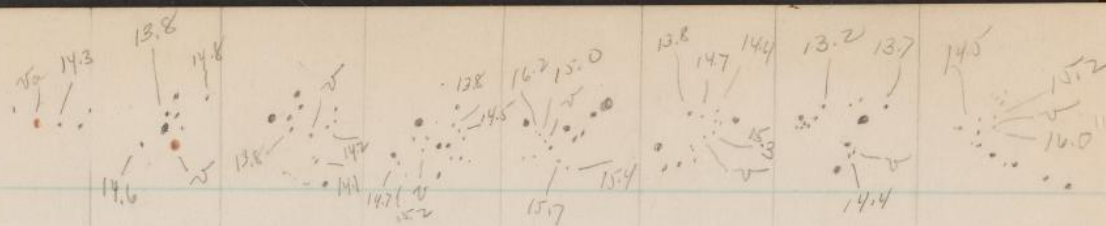 v 14.3
13.8 14.8
14.6 v
v
13.8 14.2
14.1
13.8
14.5
14.7 v
15.2
16.2 15.0
v
15.4
15.7
13.8 14.7 14.4
15.3
v
13.2 13.7
v
14.4
14.5 15.2
v
16.0